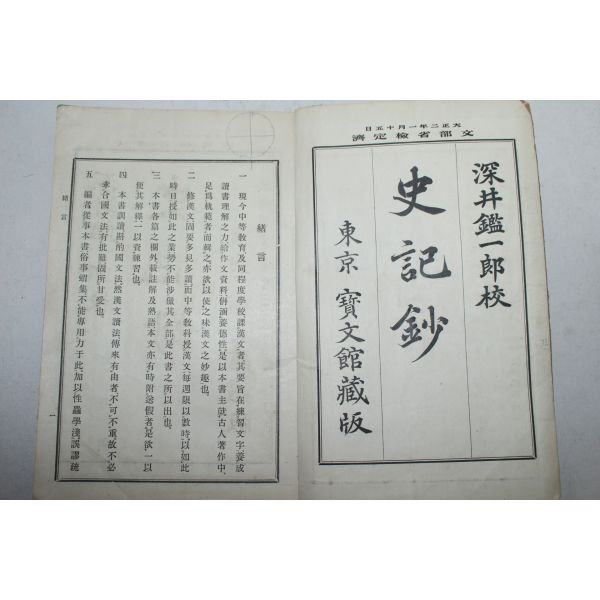 大正二年一月十五日
文部省檢定濟
深井鑑一郎校
史記鈔
東京 寶文館藏版
緒言
一 現今中等教育及同程度學校課漢文者其要旨在練習文字養成
讀書理解之力給作文資料併涵養德性是以本書主就古人著作中
足爲軌範者而輯之亦欲以使之味漢文之妙趣也
二 修漢文固要多見多讀而中等教科授漢文每週限以數時以如此
時日授如此之業勢不能涉獵其全部是此書之所以出也
三 本書各篇之欄外載註解及熟語本文亦有時附送假者是欲一以
便其解釋一以資練習也
四 本書訓讀斯的國文法然漢文讀法傳來有由者不可不重故不必
牽合國文法有批難固所甘受也
五 編者從事本書俗事蝟集不能專用力于此加以性麤學淺誤謬疏
緒言
一